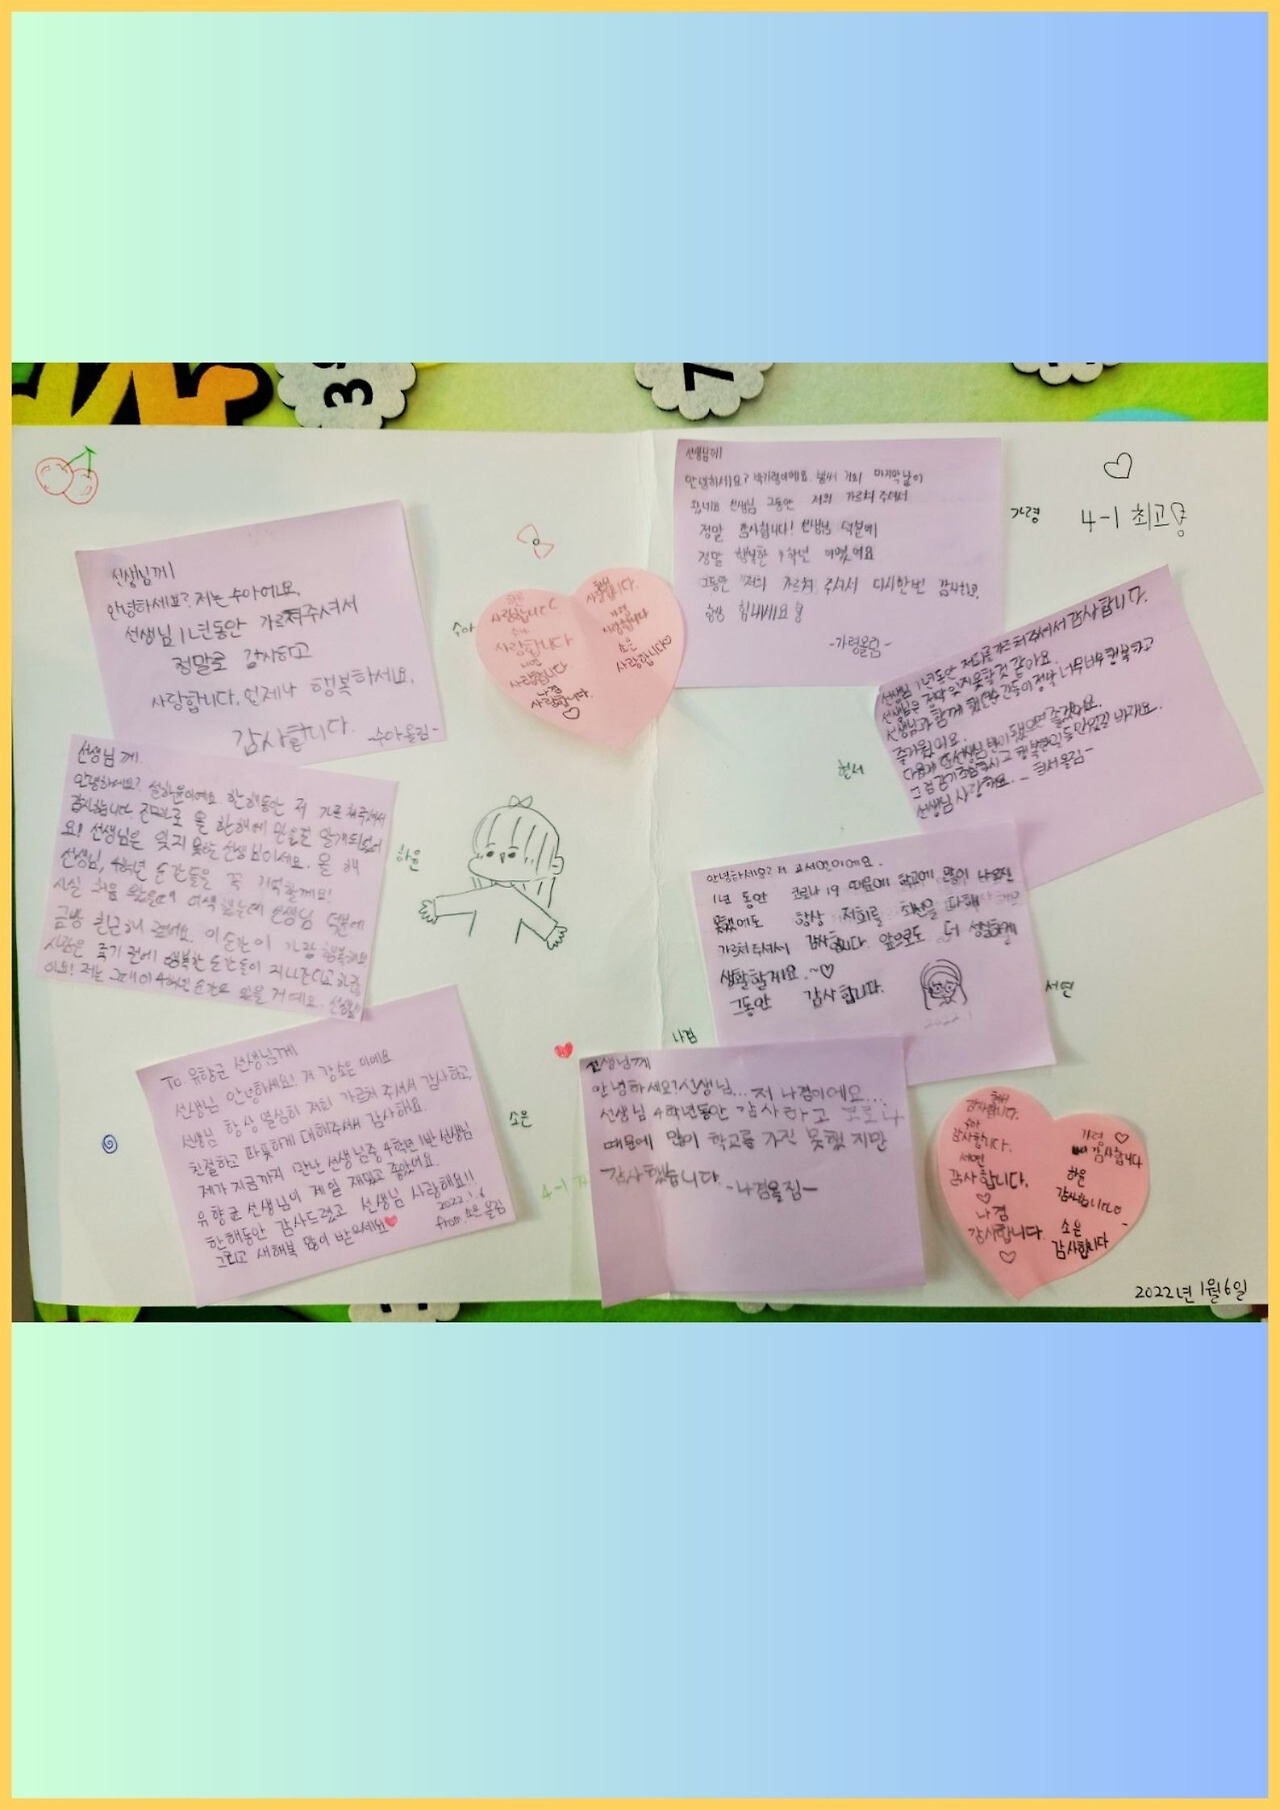 선생님께
안녕하세요? 저는 수아에요.
선생님 1년동안 가르쳐주셔서
정말로 감사하고
사랑합니다. 언제나 행복하세요.
감사합니다. -수아올림-
수아
선생님께.
안녕하세요? 설하윤이에요. 한해동안 저 가르쳐주셔서
감사합니다.
요! 선생님은 잊지 못할 선생님이세요. 올 해
선생님, 4학년 순간들을 꼭 기억할께요!
사실 처음 왔을때 어색했는데 선생님 덕분에
금방 친근해 졌어요. 이 순간이 가장 행복해요
사람은 죽기 전에 행복한 순간들이 지나간다고 하
이요! 저는 그때 이 4학년 순간도 있을 거예요.
하윤
To. 유향균 선생님께
선생님 안녕하세요! 저 강소은이에요
선생님 항상 열심히 저희 가르쳐 주셔서 감사하고,
친절하고 따뜻하게 대해주셔서 감사해요.
제가 지금까지 만난 선생님중 4학년 1반 선생님
유향균 선생님이 제일 재밌고 좋았어요.
한해동안 감사드렸고 선생님 사랑해요!!
그리고 새해복 많이 받으세요♥
2022.1.6
from.소은 올림
소은
4-1
사랑합니다
사랑합니다
사랑합니다
나겸
사랑합니다.
♡
사랑합니다.
가령
사랑합니다
소은
사랑합니다♡
선생님께
안녕하세요? 박가령이에요. 벌써 거의 마지막 날이
왔네요 선생님 그동안 저희 가르쳐 주셔서
정말 감사합니다! 선생님 덕분에
정말 행복한 4학년 이였어요
그동안 저희 가르쳐 주셔서 다시한번 감사하고,
항상 힘내세요
-가령올림-
가령
♡
4-1 최고
선생님 1년동안 저희를 가르쳐주셔서 감사합니다.
선생님은 절대 잊지 못할 것 같아요.
선생님과 함께 했던 순간들이 정말 너무너무 행복하고
즐거웠어요.
다음에 또 선생님 반이 됐으면 좋겠어요.
그럼 감기조심하시고 행복한 일들만 있길 바래요.
선생님 사랑해요. - 현서올림-
현서
안녕하세요? 저 고서연이에요.
1년 동안 코로나19 때문에 학교에 많이 나오진
못했에도 항상 저희를 최선을 다해
가르쳐주셔서 감사합니다. 앞으로도 더 성실하게
생활할게요.~♡
그동안 감사합니다.
2022.1
서연
나겸
선생님께
안녕하세요?선생님... 저 나겸이에요...
선생님 4학년동안 감사하고 코로나
때문에 많이 학교를 가진 못했지만
감사했습니다. -나겸올림-
감사합니다.
감사합니다.
서연
감사합니다.
♡
나겸
감사합니다.
♡
가령 ♡
감사합니다
하윤
소은
감사합니다
2022년 1월6일